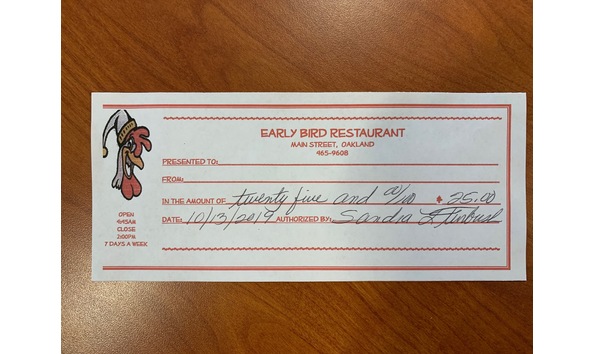 EARLY BIRD RESTAURANT
MAIN STREET, OAKLAND
465-9608
PRESENTED TO:
FROM:
IN THE AMOUNT OF twenty five and 00/100 $ 25.00
DATE: 10/13/2019 AUTHORIZED BY: Sandra L
OPEN
4:45AM
CLOSE
2:00PM
7 DAYS A WEEK